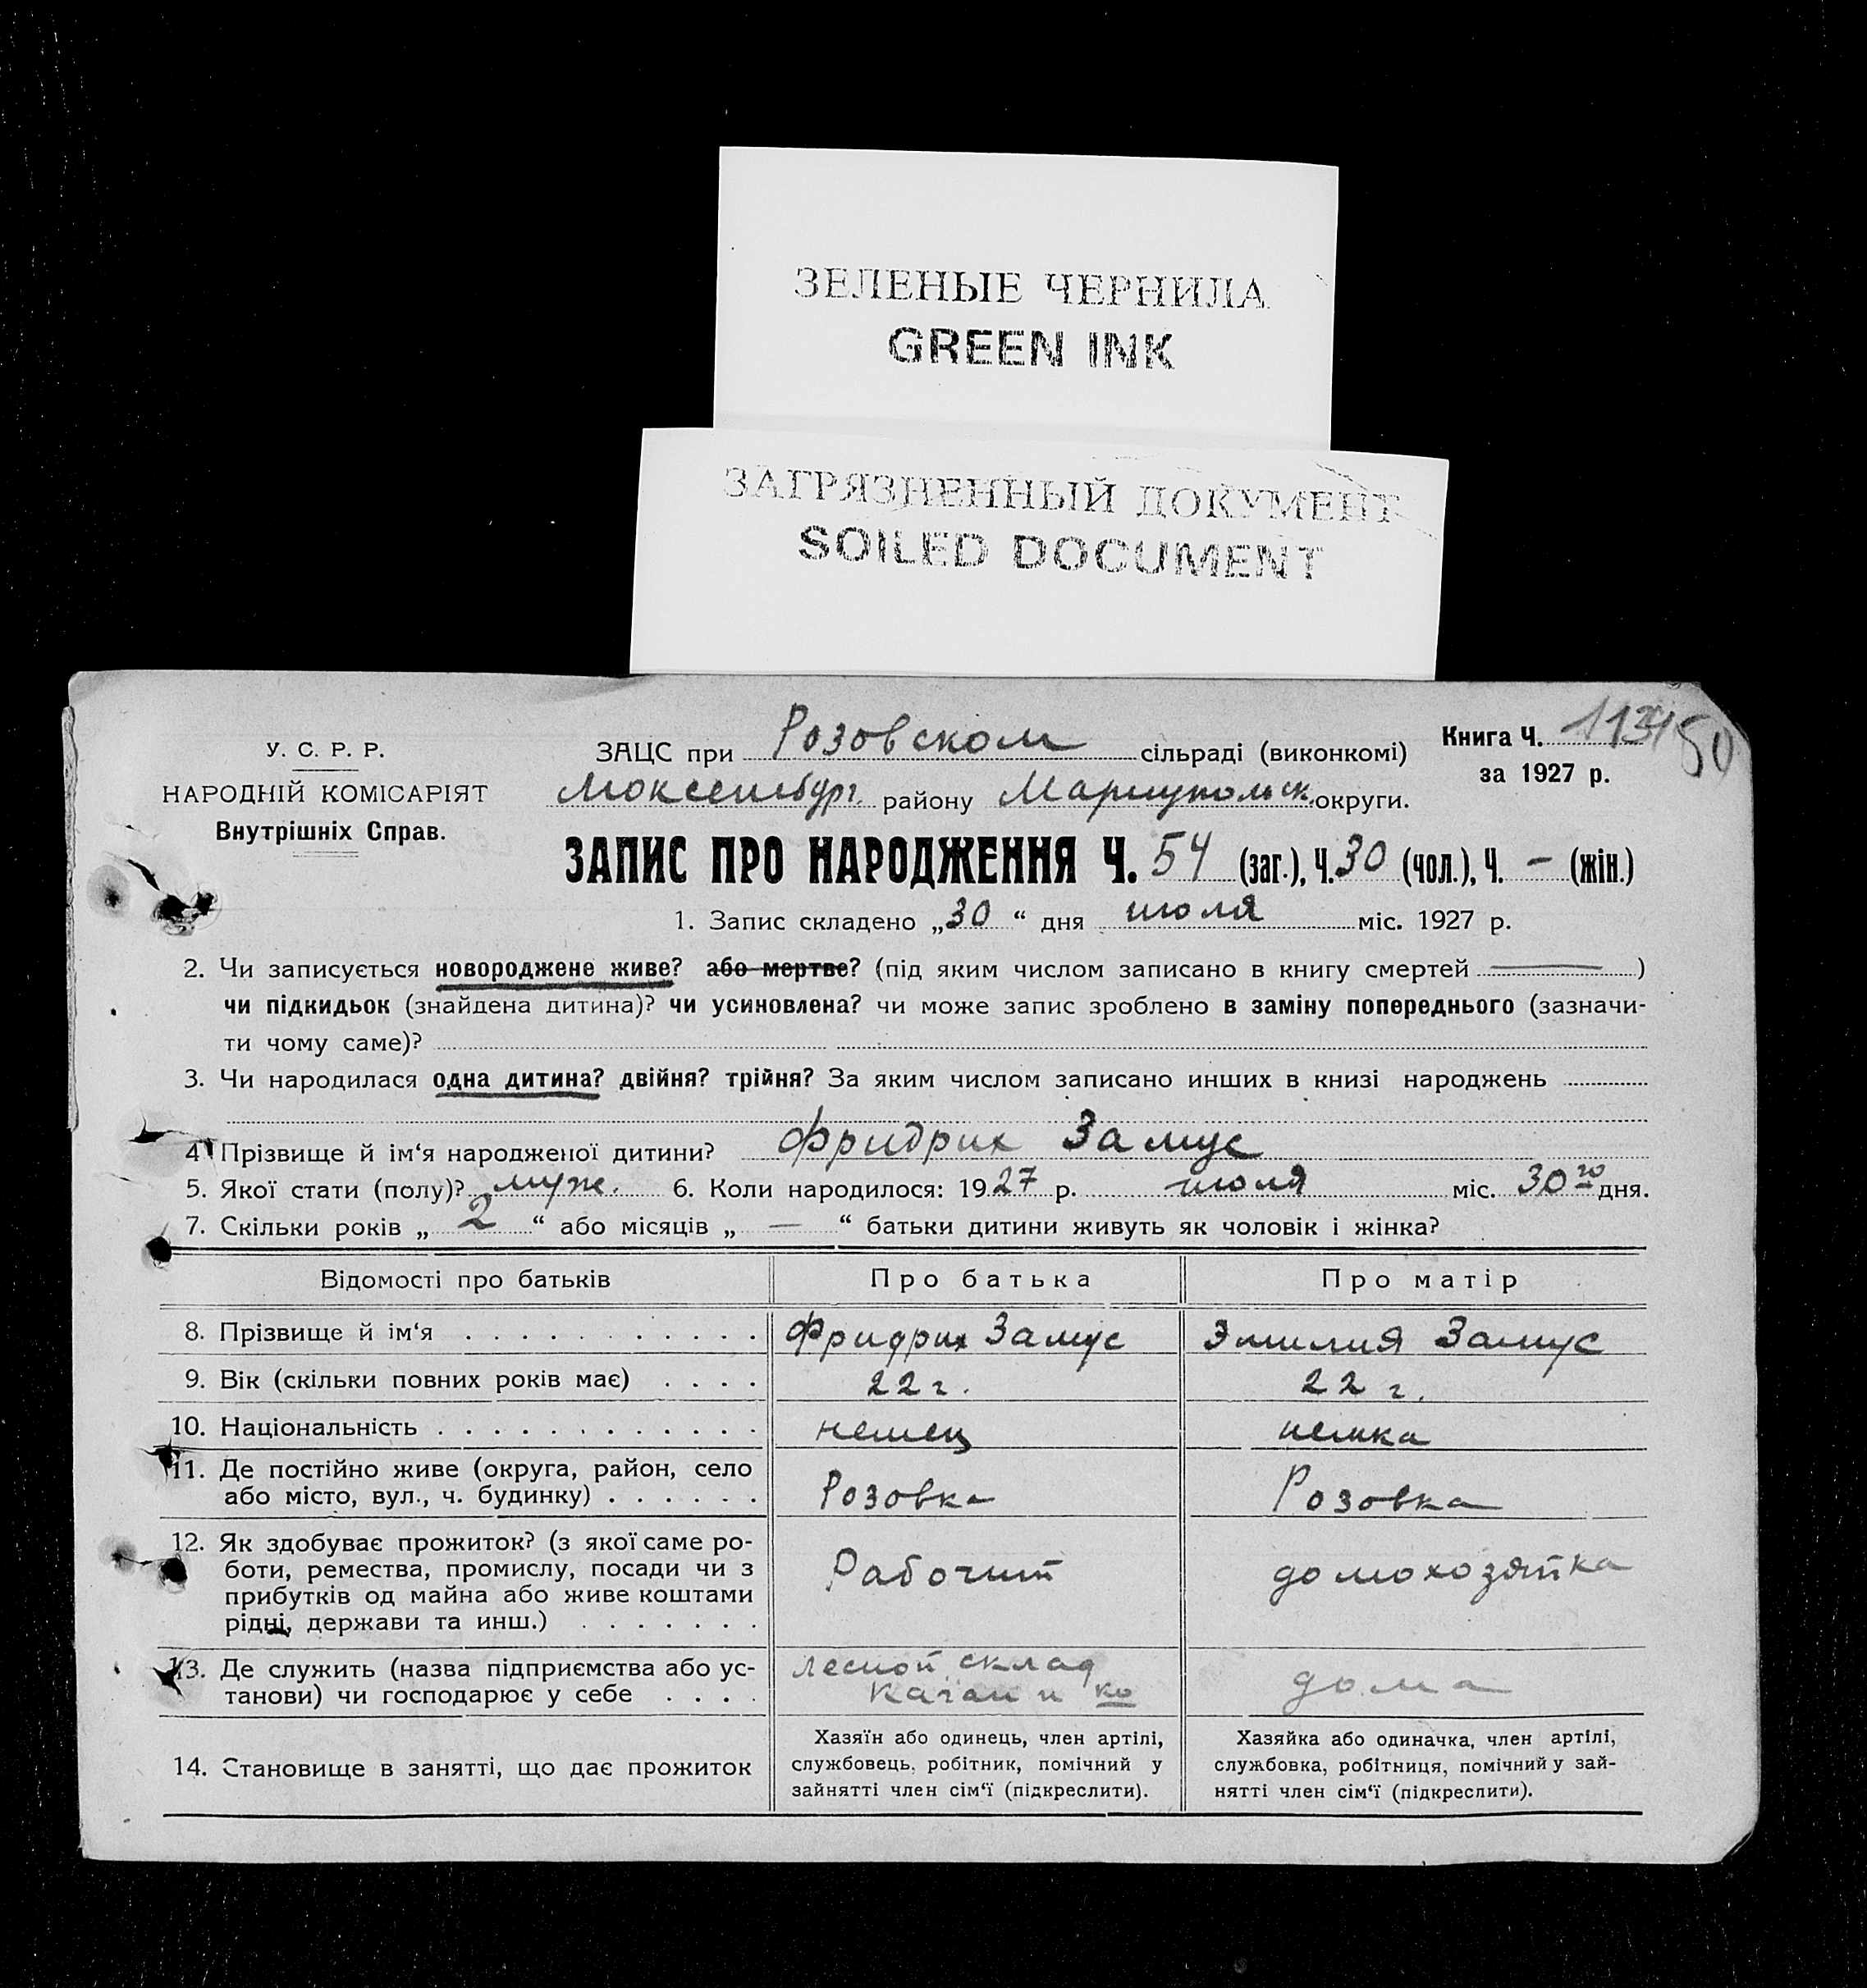 ЗЕЛЕНЫЕ ЧЕРНИЛА
GREEN INK
ЗАГРЯЗНЕННЫЙ ДОКУМЕНТ
SOILED DOCUMENT
У. С. Р. Р.
НАРОДНІЙ КОМІСАРІЯТ
Внутрішніх Справ.
ЗАЦС при Розовском сільраді (виконкомі)
района Мариупольск. округи.
Книга Ч.
за 1927 р.
50
ЗАПИС ПРО НАРОДЖЕННЯ Ч. 54 (заг.), Ч. 30 (чол.), Ч. – (жін.)
1. Запис складено „30“ дня июля міс. 1927 р.
2. Чи записується новороджене живе? або мертве? (під яким числом записано в книгу смертей —)
чи підкидьок (знайдена дитина)? чи усиновлена? чи може запис зроблено в заміну попереднього (зазначи-
ти чому саме)?
3. Чи народилася одна дитина? двійня? трійня? За яким числом записано инших в книзі народжень
4. Прізвище й ім‘я народженої дитини? Фридрих Замус
5. Якої стати (полу)? муж. 6. Коли народилося: 1927 р. июля міс. 30го дня.
7. Скільки років „2“ або місяців „—“ батьки дитини живуть як чоловік і жінка?
Відомості про батьків Про батька Про матір
8. Прізвище й ім‘я Фридрих Замус Эмилия Замус
9. Вік (скільки повних років має) 22 г. 22 г.
10. Національність немец немка
11. Де постійно живе (округа, район, село
або місто, вул., ч. будинку) Розовка Розовка
12. Як здобуває прожиток? (з якої саме ро-
боти, ремества, промислу, посади чи з
прибутків од майна або живе коштами
рідні, держави та инш.) Рабочий домохозяйка
13. Де служить (назва підприємства або ус-
танови) чи господарює у себе лесной склад
Каган и ко дома
14. Становище в занятті, що дає прожиток
Хазяїн або одинець, член артілі,
службовець, робітник, помічний у
зайнятті член сім‘ї (підкреслити).
Хазяйка або одиначка, член артілі,
службовка, робітниця, помічний у зай-
нятті член сім‘ї (підкреслити).